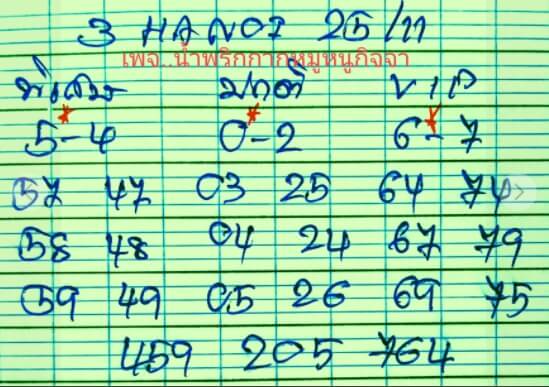 3 HANOI 25/11
เพจ..น้ำพริกกากหมูหนูกิจจา
พิเศษ ปกติ VIP
5-4 0-2 6-7
57 47 03 25 64 74
58 48 04 24 67 79
59 49 05 26 69 75
459 205 764